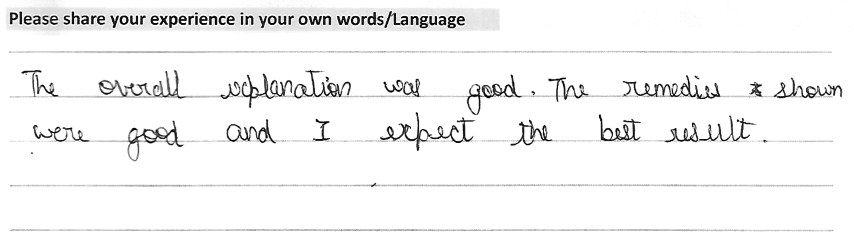 Please share your experience in your own words/Language
The overall explanation was good. The remedies shown
were good and I expect the best result.